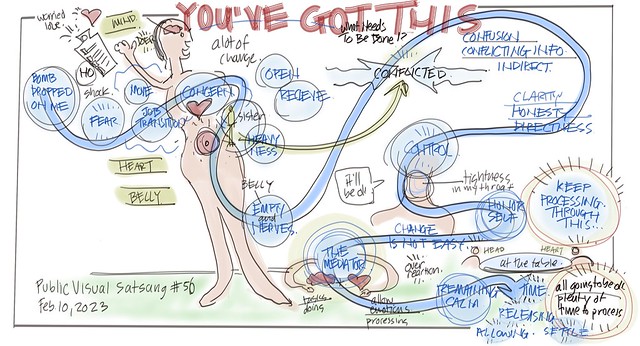 YOU'VE GOT THIS
worried
love.
MIND.
a lot of
change.
What Needs
To Be Done!?
CONFUSION
CONFLICTING INFO.
INDIRECT.
BOMB
DROPPED
ON ME
NO
shock.
FEAR
MOVE
JOB
TRANSITION
CONCERN
OPEN
RECEIVE
CONFLICTED
CLARITY
HONESTY
DIRECTNESS
sister
HEAVY
NESS
HEART
BELLY
BELLY
EMPTY
and
NERVES.
CONTROL
it'll
be ok!
tightness
in my throat
HONOR
SELF
KEEP
PROCESSING
THROUGH
THIS...
CHANGE
IS NOT EASY.
HEAD
HEART
at the table.
THE
MEDIATOR
over
reaction.
doing
allow
emotions
processing
REMAINING
CALM
TIME
RELEASING
ALLOWING.
SETTLE
all going to be ok
plenty of
time to process
Public Visual Satsang #56
Feb 10, 2023